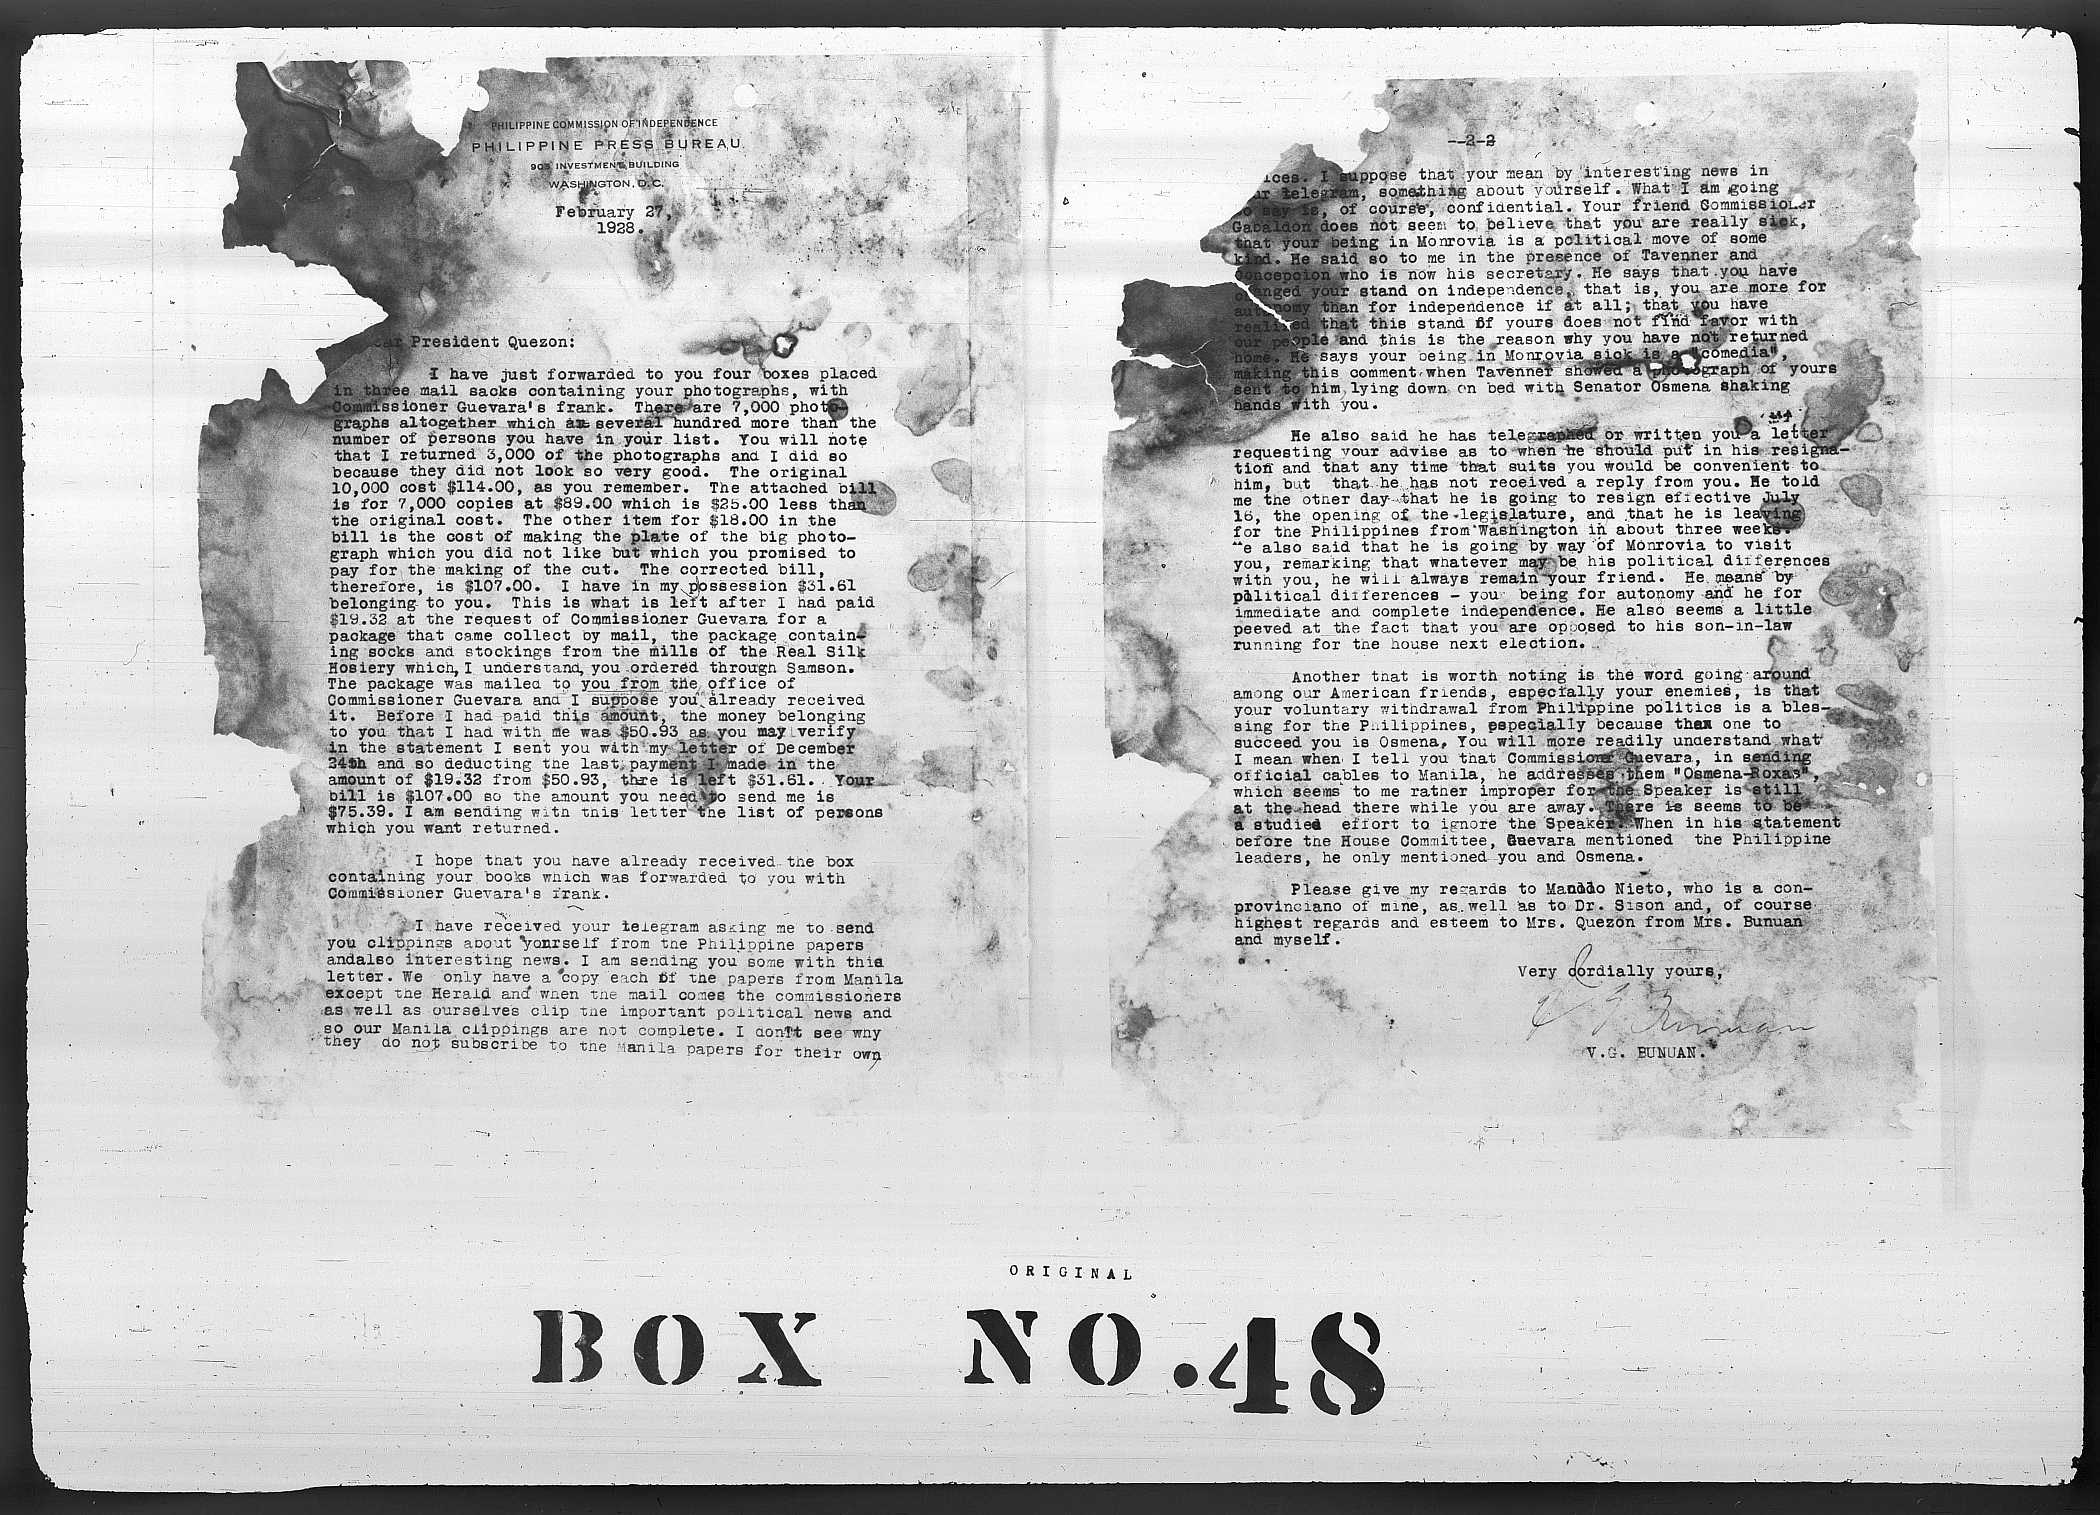 PHILIPPINE COMMISSION OF INDEPENDENCE
PHILIPPINE PRESS BUREAU
903 INVESTMENT BUILDING
WASHINGTON, D.C.
February 27,
1928.
President Quezon:
I have just forwarded to you four boxes placed
in three mail sacks containing your photographs, with
Commissioner Guevara's frank. There are 7,000 photo-
graphs altogether which are several hundred more than the
number of persons you have in your list. You will note
that I returned 3,000 of the photographs and I did so
because they did not look so very good. The original
10,000 cost $114.00, as you remember. The attached bill
is for 7,000 copies at $89.00 which is $25.00 less than
the original cost. The other item for $18.00 in the
bill is the cost of making the plate of the big photo-
graph which you did not like but which you promised to
pay for the making of the cut. The corrected bill,
therefore, is $107.00. I have in my possession $31.61
belonging to you. This is what is left after I had paid
$19.32 at the request of Commissioner Guevara for a
package that came collect by mail, the package contain-
ing socks and stockings from the mills of the Real Silk
Hosiery which, I understand, you ordered through Samson.
The package was mailed to you from the office of
Commissioner Guevara and I suppose you already received
it. Before I had paid this amount, the money belonging
to you that I had with me was $50.93 as you may verify
in the statement I sent you with my letter of December
24th and so deducting the last payment I made in the
amount of $19.32 from $50.93, thre is left $31.61. Your
bill is $107.00 so the amount you need to send me is
$75.39. I am sending with this letter the list of persons
which you want returned.
I hope that you have already received the box
containing your books which was forwarded to you with
Commissioner Guevara's frank.
I have received your telegram asking me to send
you clippings about yourself from the Philippine papers
andalso interesting news. I am sending you some with this
letter. We only have a copy each of the papers from Manila
except the Herald and when the mail comes the commissioners
as well as ourselves clip the important political news and
so our Manila clippings are not complete. I don't see why
they do not subscribe to the Manila papers for their own
--2-2
ices. I suppose that you mean by interesting news in
ur telegram, something about yourself. What I am going
to say is, of course, confidential. Your friend Commissioner
Gabaldon does not seem to believe that you are really sick,
that your being in Monrovia is a political move of some
kind. He said so to me in the presence of Tavenner and
Concepcion who is now his secretary. He says that you have
changed your stand on independence, that is, you are more for
autonomy than for independence if at all; that you have
realized that this stand of yours does not find favor with
our people and this is the reason why you have not returned
home. He says your being in Monrovia sick is a "comedia",
making this comment when Tavenner showed a photograph of yours
sent to him lying down on bed with Senator Osmena shaking
hands with you.
He also said he has telegraphed or written you a letter
requesting your advise as to when he should put in his resigna-
tion and that any time that suits you would be convenient to
him, but that he has not received a reply from you. He told
me the other day that he is going to resign effective July
16, the opening of the legislature, and that he is leaving
for the Philippines from Washington in about three weeks.
He also said that he is going by way of Monrovia to visit
you, remarking that whatever may be his political differences
with you, he will always remain your friend. He means by
political differences - you being for autonomy and he for
immediate and complete independence. He also seems a little
peeved at the fact that you are opposed to his son-in-law
running for the house next election.
Another that is worth noting is the word going around
among our American friends, especially your enemies, is that
your voluntary withdrawal from Philippine politics is a bles-
sing for the Philippines, especially because the one to
succeed you is Osmena. You will more readily understand what
I mean when I tell you that Commissioner Guevara, in sending
official cables to Manila, he addresses them "Osmena-Roxas",
which seems to me rather improper for the Speaker is still
at the head there while you are away. There is seems to be
a studied effort to ignore the Speaker. When in his statement
before the House Committee, Guevara mentioned the Philippine
leaders, he only mentioned you and Osmena.
Please give my regards to Nieto, who is a con-
provinciano of mine, as well as to Dr. Sison and, of course
highest regards and esteem to Mrs. Quezon from Mrs. Bunuan
and myself.
Very cordially yours,
V G Bunuan
V.G. BUNUAN.
ORIGINAL
BOX NO.48